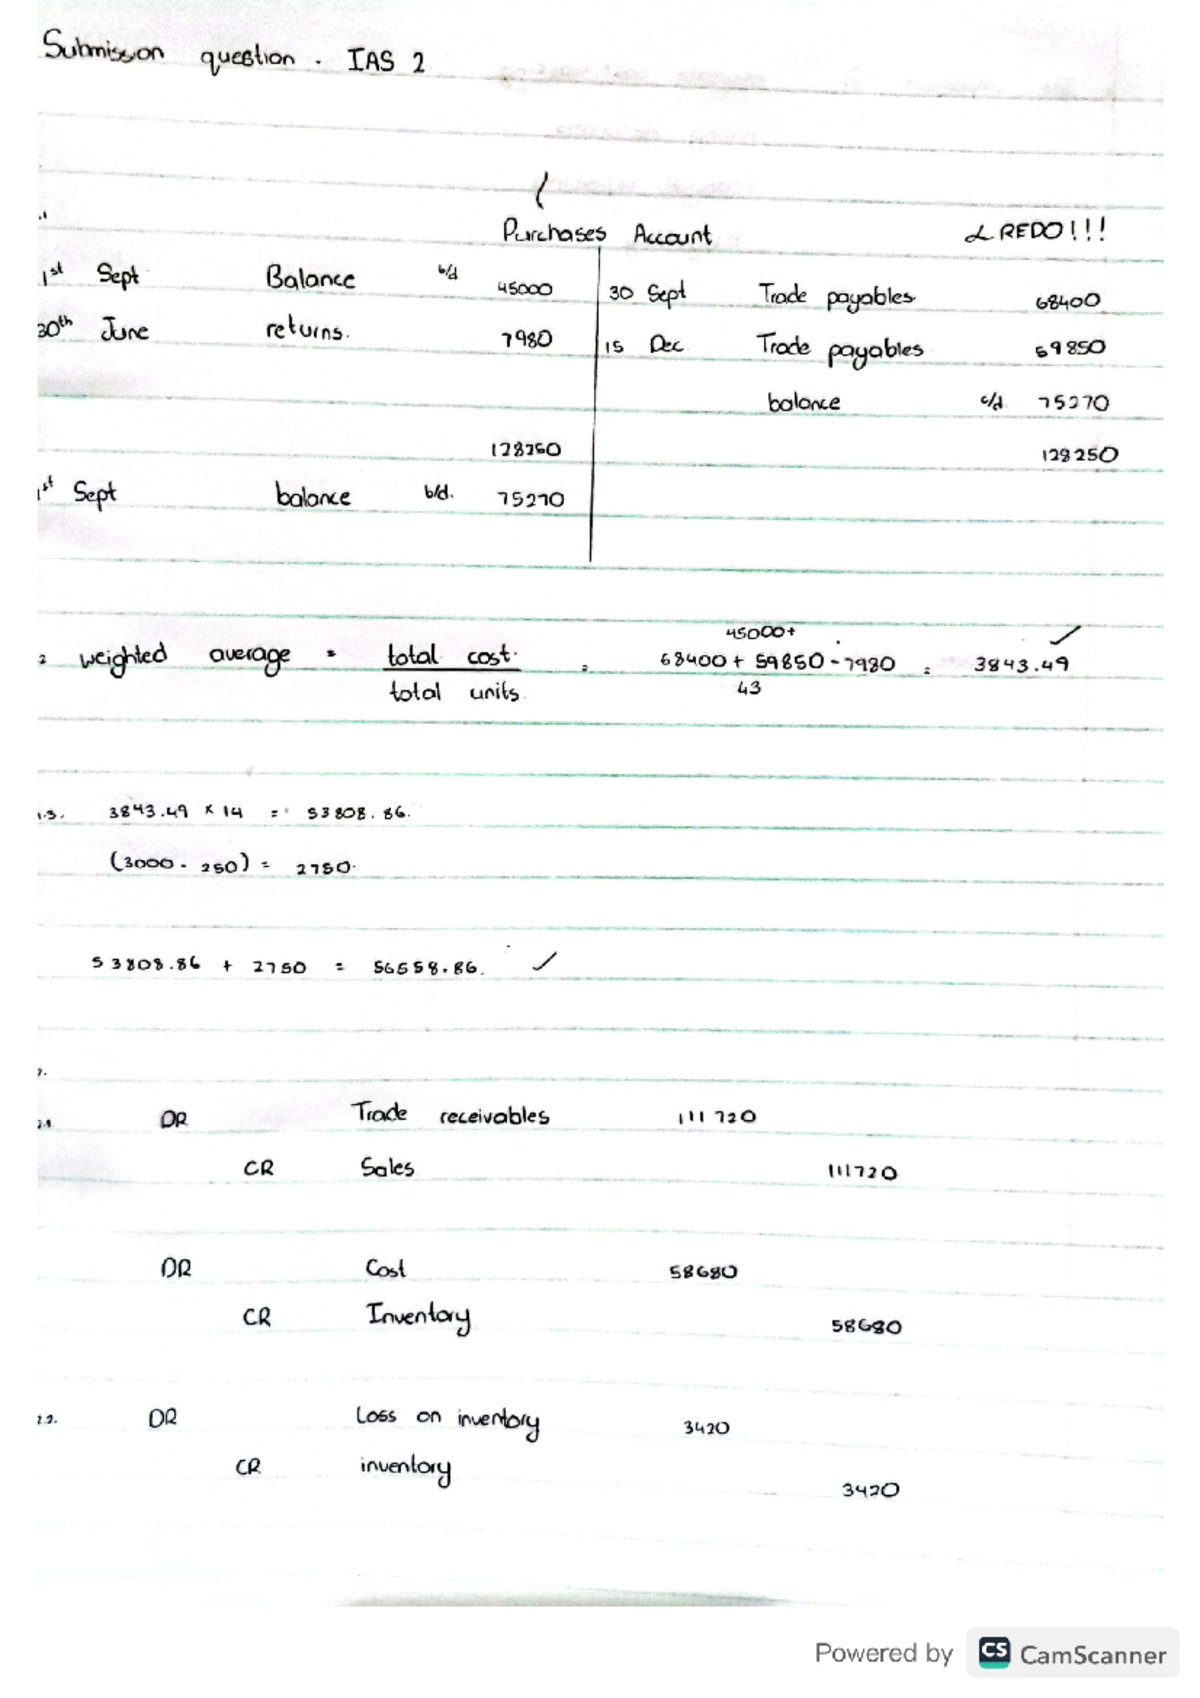 Submission question . IAS 2
.1
Purchases Account ∠ REDO!!!
1st Sept Balance b/d 45000 30 Sept Trade payables 68400
30th June returns. 7980 15 Dec Trade payables 59850
balance c/d 75270
128250 128250
1st Sept balance b/d. 75270
2 weighted average = total cost. = 45000+ 68400 + 59850 - 7980 = 3843.49 ✓
total units 43
1.3. 3843.49 × 14 = 53808.86.
(3000 - 250) = 2750.
53808.86 + 2750 = 56558.86. ✓
2.
2.1 DR Trade receivables 111720
CR Sales 111720
DR Cost 58680
CR Inventory 58680
2.2. DR Loss on inventory 3420
CR inventory 3420
Powered by CS CamScanner